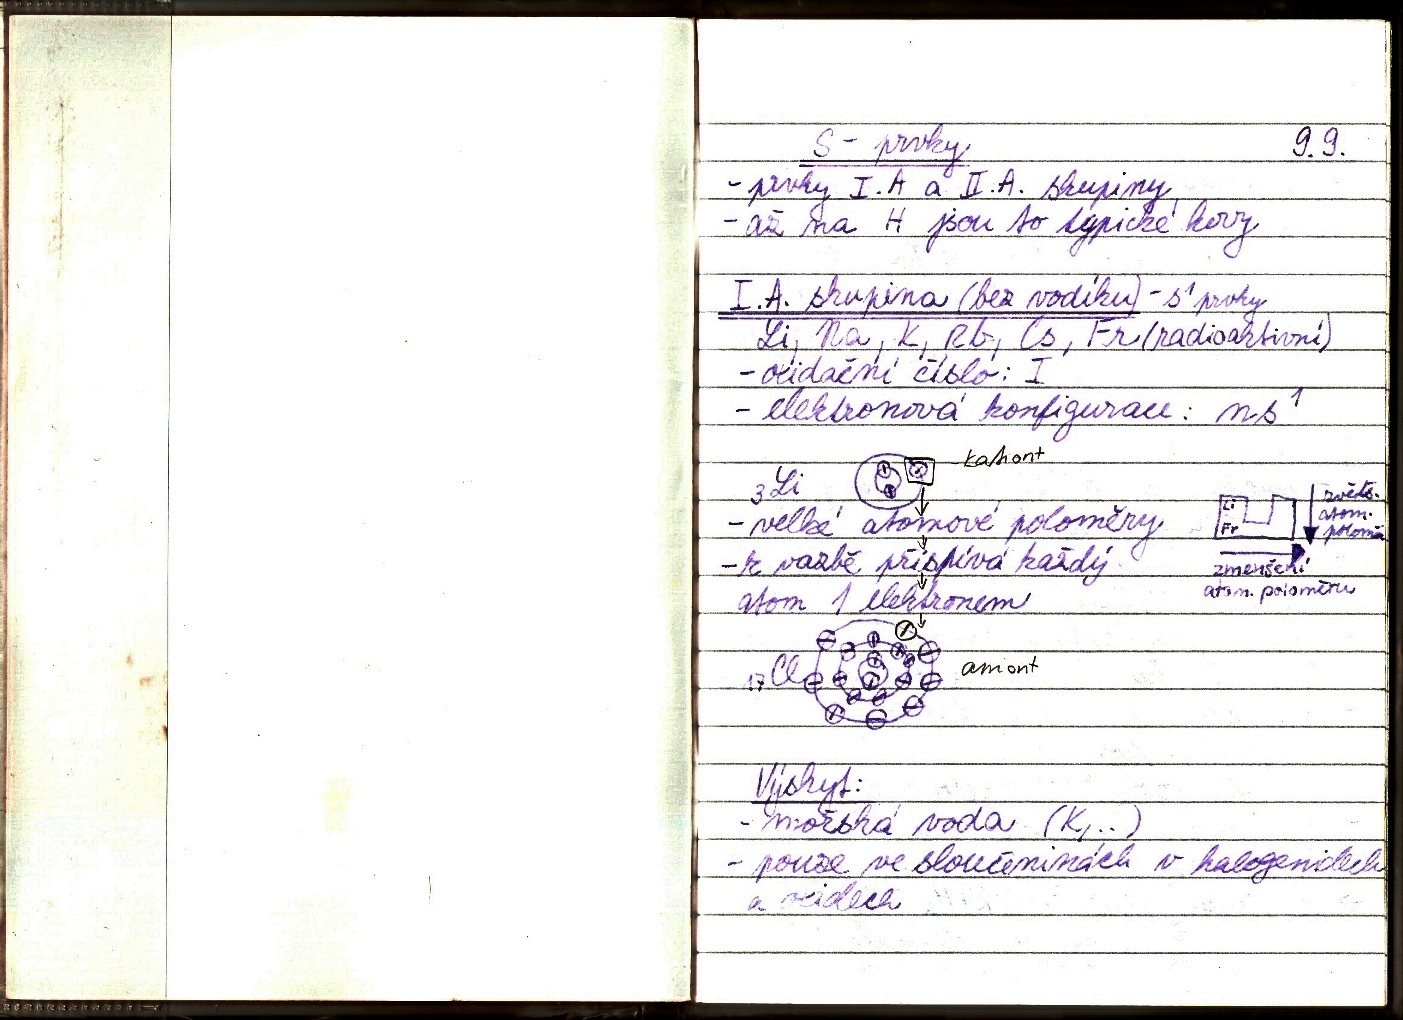 S - prvky 9.9.
- prvky I.A a II.A. skupiny
- až na H jsou to typické kovy
I.A. skupina (bez vodíku) - s¹ prvky
Li, Na, K, Rb, Cs, Fr (radioaktivní)
- oxidační číslo: I
- elektronová konfigurace: ns¹
kationt
₃Li
- velké atomové poloměry
- k vazbě přispívá každý
atom 1 elektronem
Li
Fr
zvětš.
atom.
polomě
zmenšení
atom. poloměru
₁₇Cl
aniont
Výskyt:
- mořská voda (K,..)
- pouze ve sloučeninách v halogenidech
a oxidech